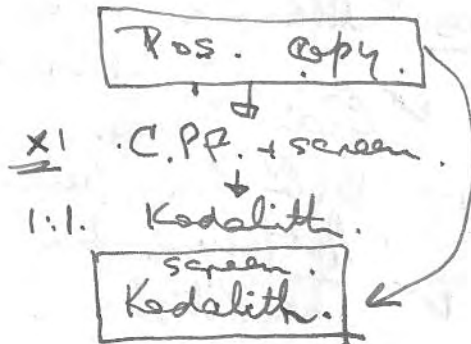 Pos. copy.
x1 .C.PF. + screen.
1:1. Kodalith.
screen.
Kodalith.